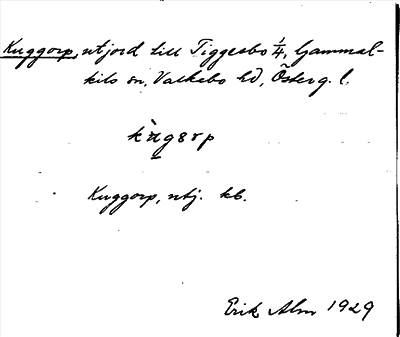 Kuggorp, utjord till Tiggesbo 1/4, Gammal-
kils sn, Valkebo hd, Österg. l.
kùgorp
Kuggorp, utj. kb.
Erik Alm 1929